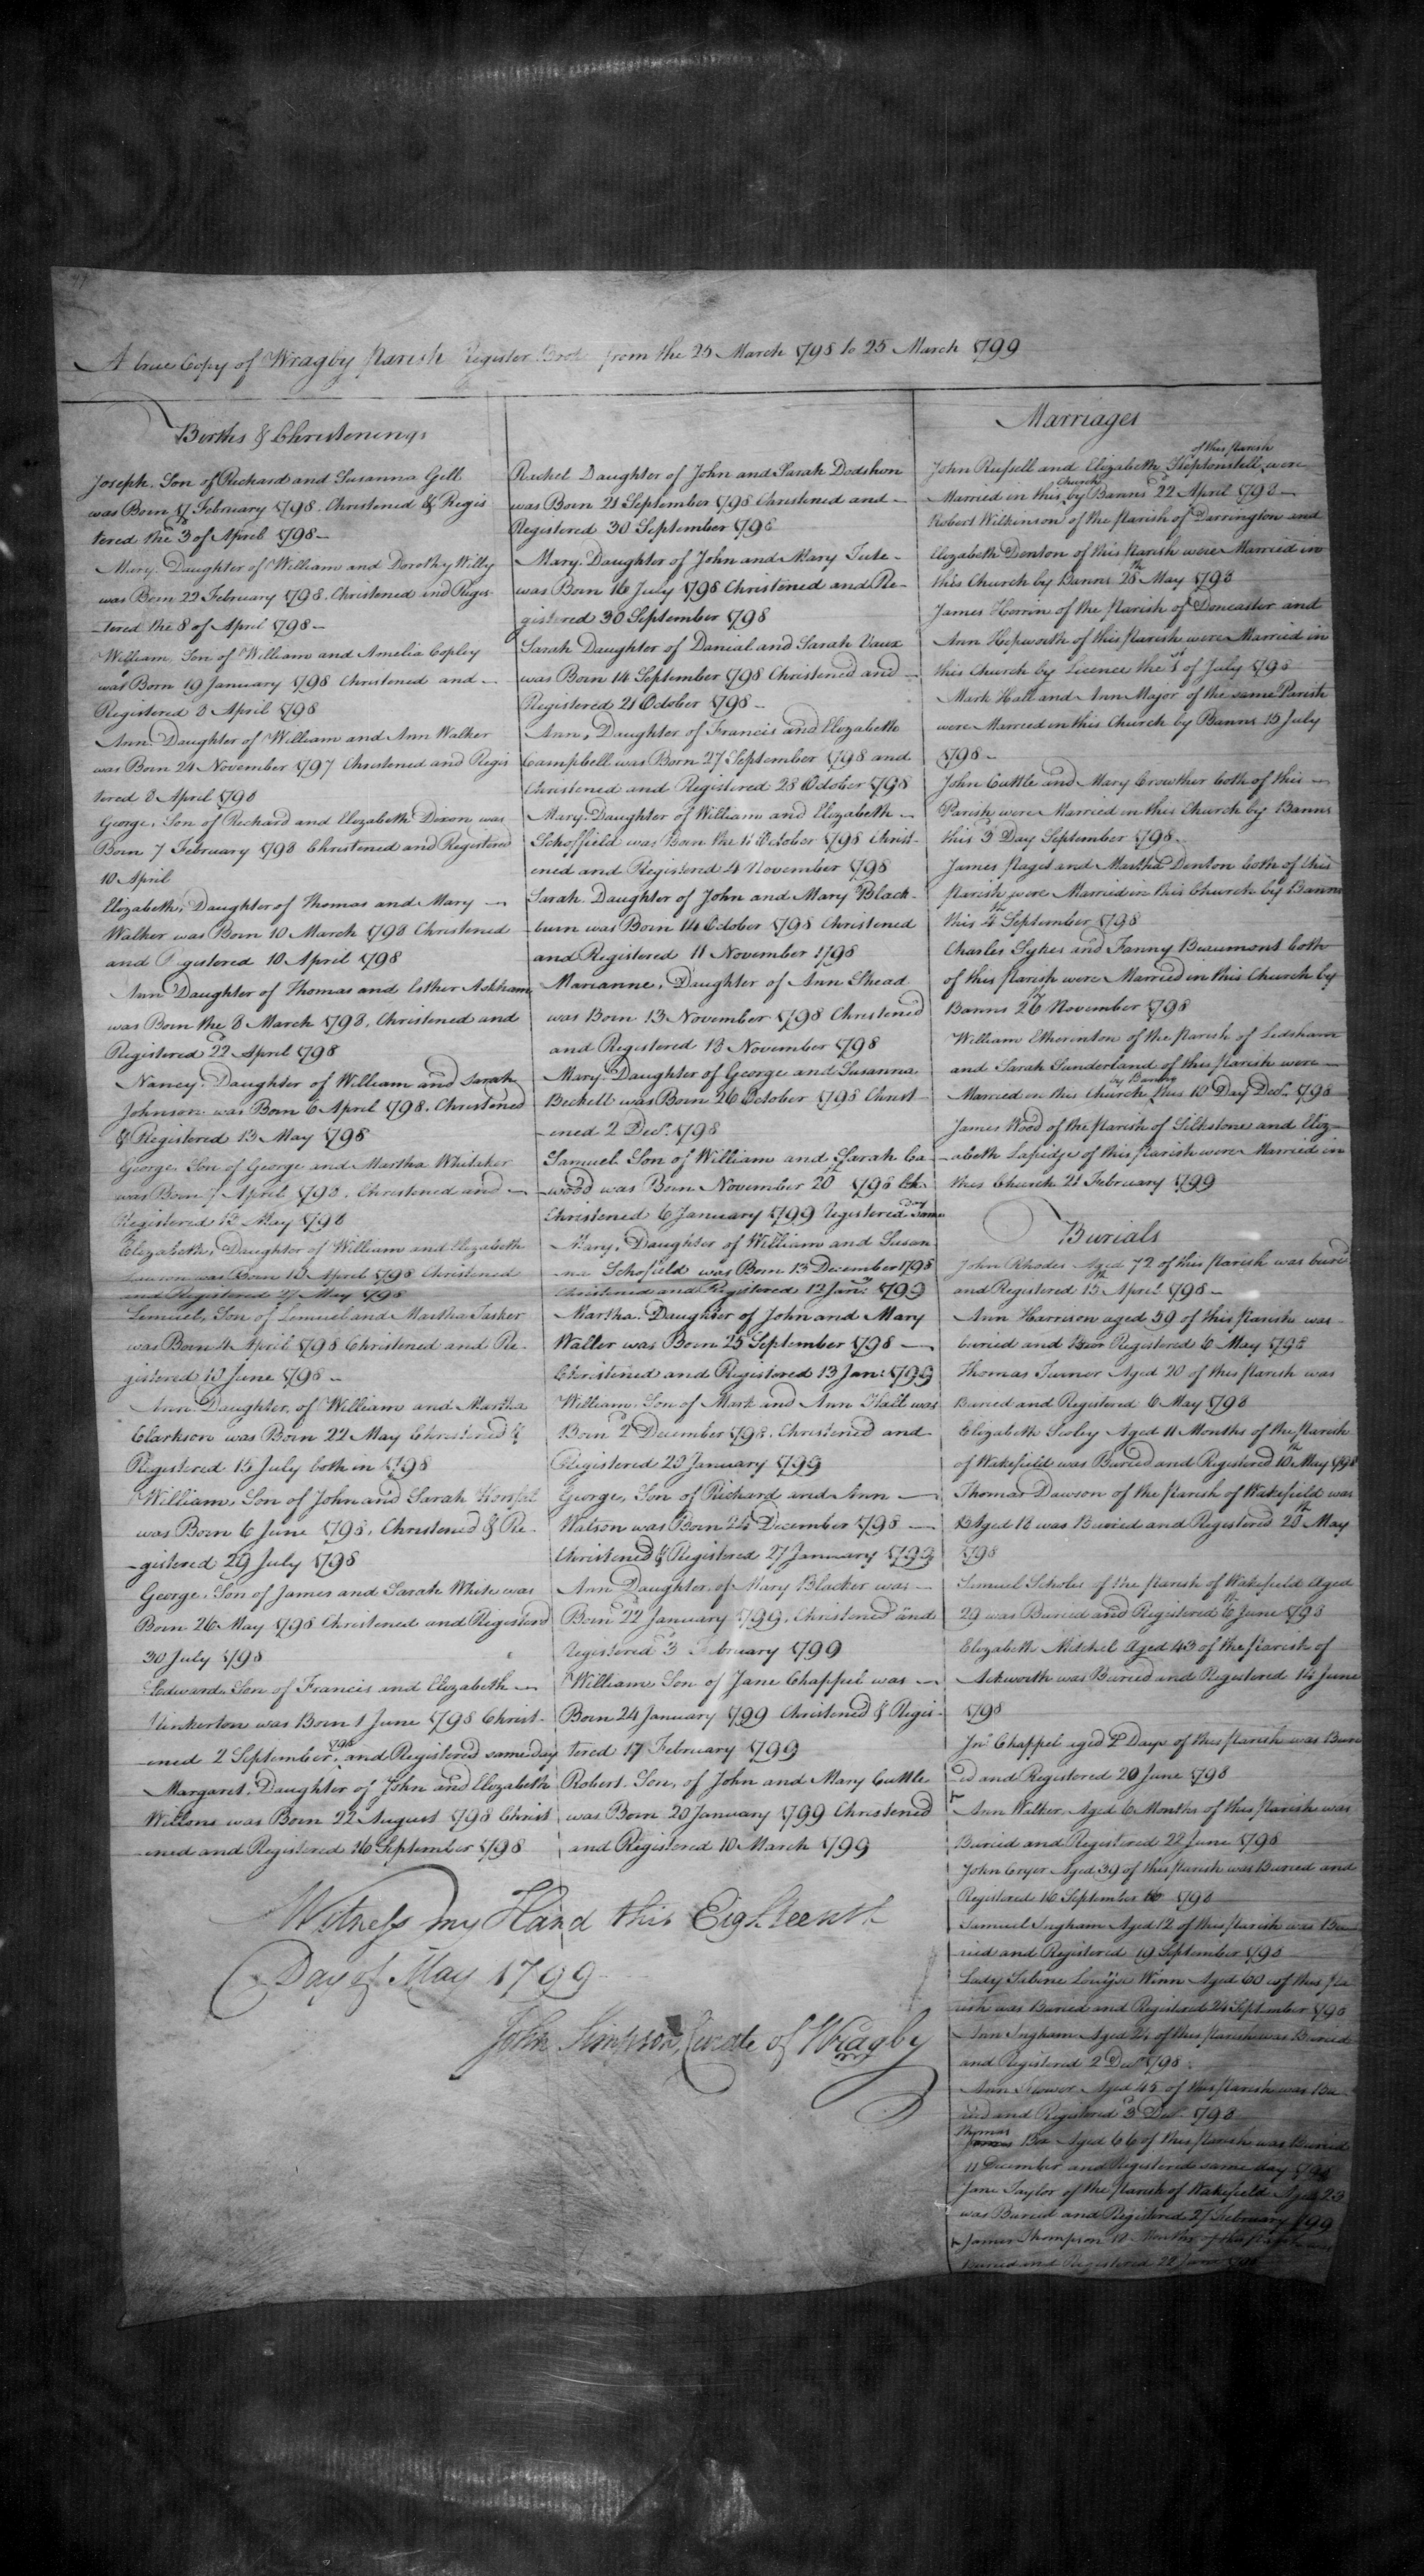 A true Copy of Wragby Parish Register Book from the 25 March 1798 to 25 March 1799
Births & Christenings
Joseph. Son of Richard and Susanna Gill
was Born 17 February 1798. Christened & Regis
tered the 3 of April 1798 -
Mary. Daughter of William and Dorothy Willy
was Born 22 February 1798. Christened and Regis
-tered the 8 of April 1798 -
William. Son of William and Amelia Copley
was Born 19 January 1798 Christened and -
Registered 8 April 1798
Ann. Daughter of William and Ann Walker
was Born 24 November 1797 Christened and Regis
tered 8 April 1798
George. Son of Richard and Elizabeth Dixon was
Born 7 February 1798 Christened and Registered
10 April
Elizabeth, Daughter of Thomas and Mary -
Walker was Born 10 March 1798 Christened
and Registered 10 April 1798
Ann Daughter of Thomas and Esther Askham
was Born the 8 March 1798. Christened and
Registered 22 April 1798
Nancy. Daughter of William and Sarah
Johnson was Born 6 April 1798. Christened
& Registered 13 May 1798
George Son of George and Martha Whiteker
was Born 7 April 1798. Christened and -
Registered 13 May 1798
Elizabeth, Daughter of William and Elizabeth
was Born 10 April 1798 Christened
and Registered 27 May 1798
Lemuel, Son of Lemuel and Martha Tasker
was Born 4 April 1798 Christened and Re-
gistered 10 June 1798 -
Ann Daughter, of William and Martha
Clarkson was Born 22 May Christened &
Registered 15 July both in 1798
William, Son of John and Sarah
was Born 6 June 1798. Christened & Re-
-gistered 29 July 1798
George, Son of James and Sarah White was
Born 26 May 1798 Christened and Registered
30 July 1798
Edward, Son of Francis and Elizabeth -
Pinkerton was Born 1 June 1798 Christ-
ened 2 September, 1798 and Registered same day
Margaret, Daughter of John and Elizabeth
Willons was Born 22 August 1798 Christ
-ened and Registered 16 September 1798
Rachel Daughter of John and Sarah Dodshon
was Born 21 September 1798 Christened and -
Registered 30 September 1798
Mary. Daughter of John and Mary Tute -
was Born 16 July 1798 Christened and Re-
gistered 30 September 1798
Sarah Daughter of Danial and Sarah Vaux
was Born 14 September 1798 Christened and -
Registered 21 October 1798 -
Ann, Daughter of Francis and Elizabeth
Campbell was Born 27 September 1798 and
Christened and Registered 28 October 1798
Mary. Daughter of William and Elizabeth -
Schoffield was Born the 11 October 1798 Christ-
ened and Registered 4 November 1798
Sarah. Daughter of John and Mary Black-
burn was Born 14 October 1798 Christened
and Registered 11 November 1798
Marianne, Daughter of Ann Shead
was Born 13 November 1798 Christened
and Registered 13 November 1798
Mary. Daughter of George and Susanna
Beckett was Born 26 October 1798 Christ
-ened 2 Decr. 1798
Samuel Son of William and Sarah Ca
-wood was Born November 20th 1798 Ch
Christened 6 January 1799 Registered same Day
Mary, Daughter of William and Susan
-na Schofield was Born 13 December 1798
Christened and Registered 12 Jany. 1799
Martha. Daughter of John and Mary
Waller was Born 25 September 1798 -
Christened and Registered 13 Jan: 1799
William. Son of Mark and Ann Hall was
Born 2d December 1798. Christened and
Registered 23 January 1799
George, Son of Richard and Ann -
Watson was Born 24 December 1798 -
Christened & Registered 27 January 1799
Ann Daughter, of Mary Blacker was -
Born 22 January 1799. Christened and
Registered 3 February 1799
William Son of Jane Chappel was -
Born 24 January 1799 Christened & Regis-
tered 17 February 1799
Robert. Son, of John and Mary Cuttle
was Born 20 January 1799 Christened
and Registered 10 March 1799
Witness my Hand this Eighteenth
Day of May 1799
John Simpson, Curate of Wragby
Marriages
John Russell and Elizabeth Heptonstell of this Parish were
Married in this Church by Banns 22d April 1798 -
Robert Wilkinson of the Parish of Darrington and
Elizabeth Denton of this Parish were Married in
this Church by Banns 28th May 1798
James Horrin of the Parish of Doncaster and
Ann Hepworth of this Parish were Married in
this Church by Licence the 1st of July 1798
Mark Hall and Ann Major of the same Parish
were Married in this Church by Banns 15 July
1798 -
John Cuttle and Mary Crowther both of this -
Parish were Married in this Church by Banns
this 3d Day September 1798 -
James Paget and Martha Denton both of this
Parish were Married in this Church by Banns
this 4th September 1798
Charles Sykes and Fanny Beaumont both
of this Parish were Married in this Church by
Banns 26th November 1798
William Etherinton of the Parish of Ledsham
and Sarah Sunderland of this Parish were -
Married in this Church by Banns this 10 Day Decr. 1798
James Wood of the Parish of Silkstone and Eliz-
-abeth Lapidge of this Parish were Married in
this Church 21 February 1799
Burials
John Rhodes Aged 72 of this Parish was buried
and Registered 15th April 1798 -
Ann Harrison aged 59 of this Parish was
buried and Registered 6 May 1798
Thomas Turner Aged 20 of this Parish was
Buried and Registered 6 May 1798
Elizabeth Aged 11 Months of the Parish
of Wakefield was Buried and Registered 10th May 1798
Thomas Dawson of the Parish of Wakefield was
Aged 18 was Buried and Registered 20th May
1798
Lemuel Scholes of the Parish of Wakefield Aged
29 was Buried and Registered 6th June 1798
Elizabeth Mitchel Aged 43 of the Parish of
Ackworth was Buried and Registered 14 June
1798
Jno. Chappel aged Days of this Parish was Buri
-ed and Registered 20 June 1798
Ann Walker Aged 6 Months of this Parish was
Buried and Registered 22 June 1798
John Cryer Aged 39 of this Parish was Buried and
Registered 16 September 1798
Samuel Ingham Aged 12 of this Parish was Bu-
ried and Registered 19 September 1798
Lady Sabine Louise Winn Aged 60 of this Pa
rish was Buried and Registered 24 September 1798
Ann Ingham Aged 24 of this Parish was Buried
and Registered 2 Decr 1798
Ann Aged 45 of this Parish was Bu
ried and Registered 3d Decr 1798
Thomas Box Aged 66 of this Parish was Buried
11 December and Registered same day 1798
Jane Taylor of the Parish of Wakefield Aged 23
was Buried and Registered 27 February 1799
James Thompson 10 Months of this Parish was
Buried and Registered 22 June 1798